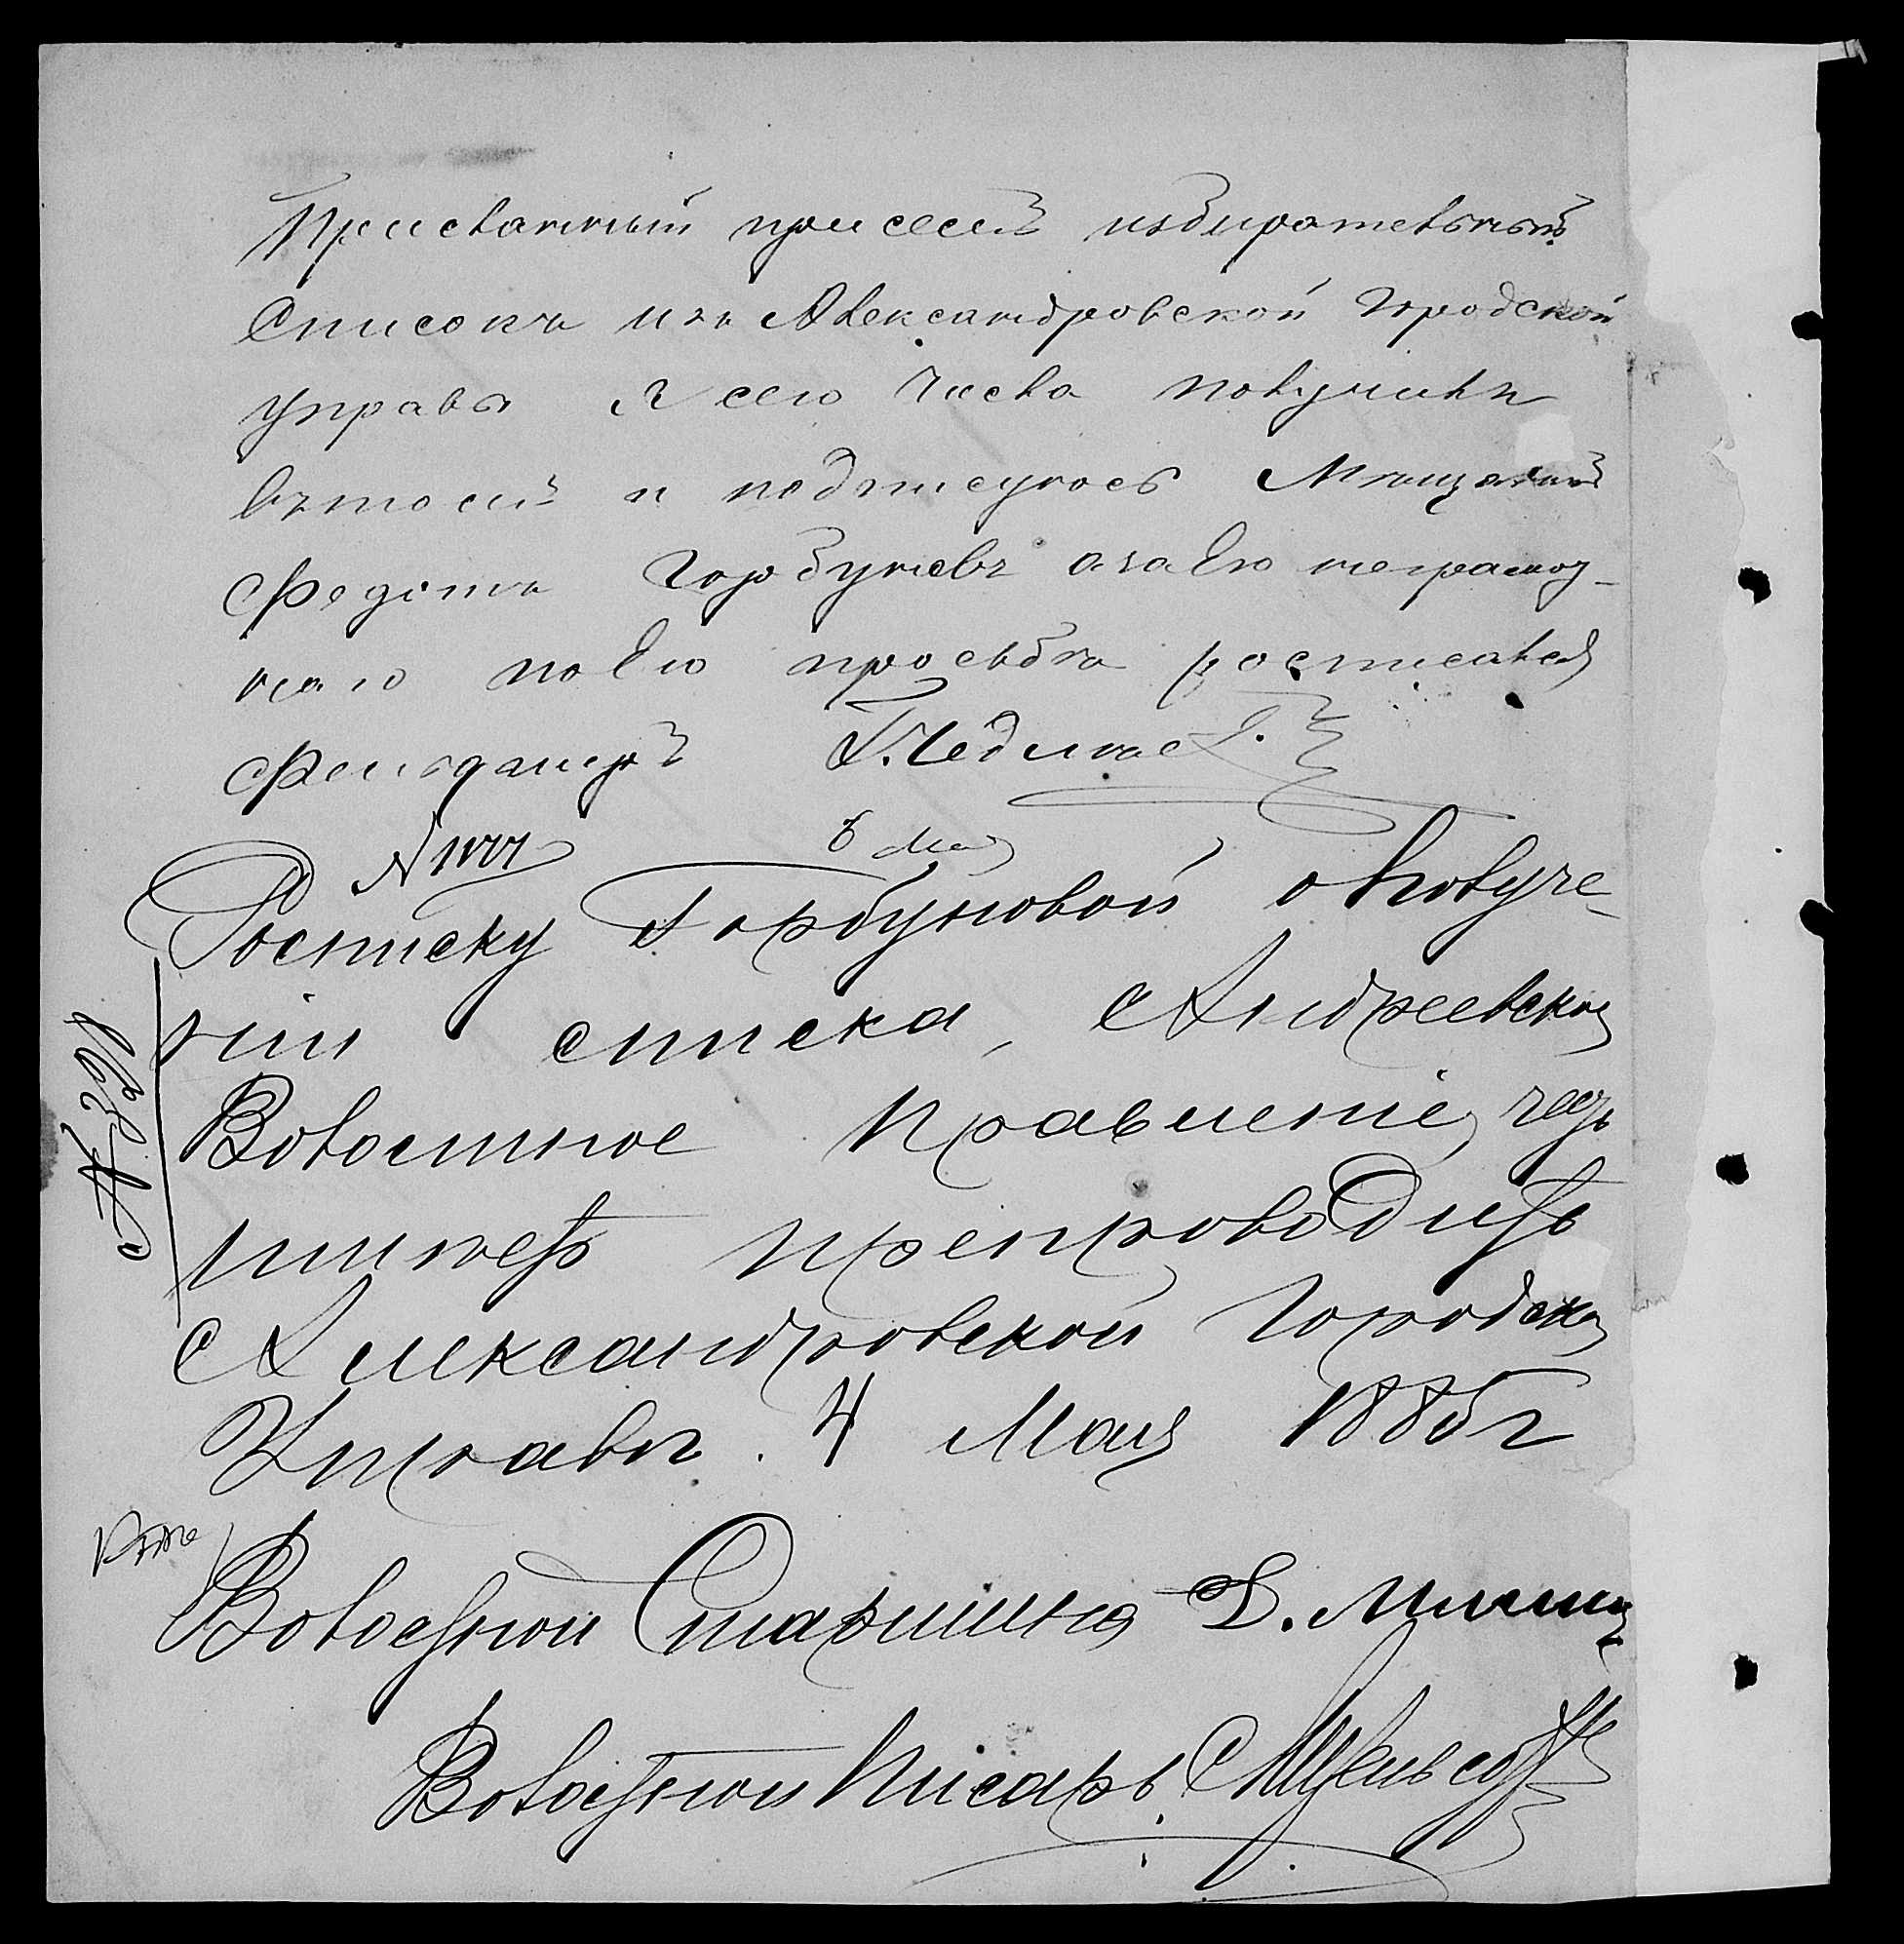 Присланный присемъ избирательный
Списокъ изъ Александровской Городской
управы я сего числа получилъ
вътомъ и подписуюсь Мещанинъ
Федотъ Горбуновъ азаего неграмот-
наго поего просьбѣ росписался
№ 1177
6 Мая
Росписку Горбуновой ополуче-
нiи списка, Андреевское
Волостное Правленiе, честь
имѣетъ препроводить
Александровской Городской
Управѣ. 4 Мая 1885 г
Волостной Старшина
Волостной Писарь